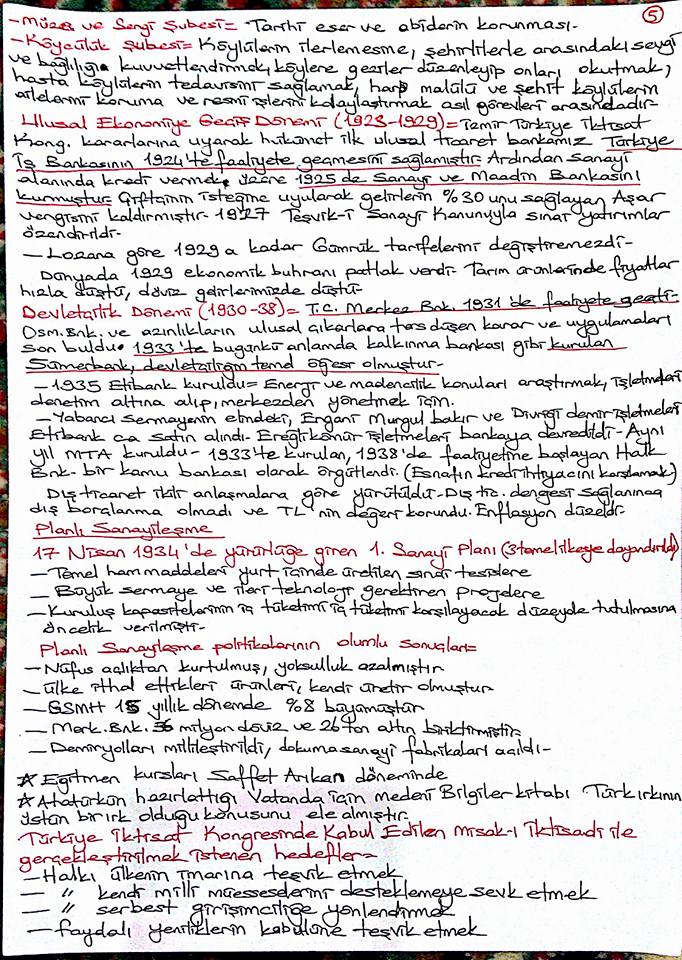 5
- Müze ve Sergi Şubesi = Tarihi eser ve abidelerin korunması.
- Köycülük Şubesi = Köylülerin ilerlemesine, şehirlilerle arasındaki sevgi
ve bağlılığı kuvvetlendirmek, köylere geziler düzenleyip onları okutmak,
hasta köylülerin tedavisini sağlamak, harp malülü ve şehit köylülerin
ailelerini koruma ve resmi işlerini kolaylaştırmak asıl görevleri arasındadır-
Ulusal Ekonomiye Geçiş Dönemi (1923-1929) = İzmir Türkiye İktisat
Kong. kararlarına uyarak hükümet ilk ulusal ticaret bankamız Türkiye
İş Bankasının 1924'te faaliyete geçmesini sağlamıştır. Ardından sanayi
alanında kredi vermek üzere 1925 de Sanayi ve Maadin Bankasını
kurmuştur. Çiftçinin isteğine uyularak gelirlerin %30 unu sağlayan Aşar
vergisini kaldırmıştır- 1927 Teşvik-i Sanayi Kanunuyla sınai yatırımlar
özendirildi-
- Lozana göre 1929 a kadar Gümrük tarifelerini değiştiremezdi-
Dünyada 1929 ekonomik buhranı patlak verdi- Tarım ürünlerinde fiyatlar
hızla düştü, döviz gelirlerimizde düştü-
Devletçilik Dönemi (1930-38) = T.C. Merkez Bnk. 1931 'de faaliyete geçti-
Osm.Bnk. ve azınlıkların ulusal çıkarlara ters düşen karar ve uygulamaları
son buldu. 1933'te bugünkü anlamda kalkınma bankası gibi kurulan
Sümerbank, devletçiliğin temel öğesi olmuştur-
- 1935 Etibank kuruldu = Enerji ve madencilik konuları araştırmak, işletmeleri
denetim altına alıp, merkezden yönetmek için.
- Yabancı sermayenin elindeki, Ergani Murgul bakır ve Divriği demir işletmeleri
Etibank ca satın alındı- Ereğli kömür işletmeleri bankaya devredildi- Aynı
yıl MTA kuruldu- 1933'te kurulan, 1938'de faaliyetine başlayan Halk
Bnk- bir kamu bankası olarak örgütlendi. (Esnafın kredi ihtiyacını karşılamak)
Dış ticaret ikili anlaşmalara göre yürütüldü- Dış tic. dengesi sağlanınca
dış borçlanma olmadı ve TL 'nin değeri korundu. Enflasyon düzeldi-
Planlı Sanayileşme
17 Nisan 1934'de yürürlüğe giren 1. Sanayi Planı (3 temel ilkeye dayandırıldı)
- Temel hammaddeleri yurt içinde üretilen sınai tesislere
- Büyük sermaye ve ileri teknoloji gerektiren projelere
- Kuruluş kapasitelerinin iç tüketimi iç tüketimi karşılayacak düzeyde tutulmasına
öncelik verilmişti-
Planlı Sanayileşme politikalarının olumlu sonuçları =
- Nüfus açlıktan kurtulmuş, yoksulluk azalmıştır
- ülke ithal ettikleri ürünleri, kendi üretir olmuştur
- GSMH 15 yıllık dönemde %8 büyümüştür
- Merk. Bnk. 36 milyon döviz ve 26 ton altın biriktirmiştir-
- Demiryolları millileştirildi, dokuma sanayi fabrikaları açıldı-
☆ Eğitmen kursları Saffet Arıkan döneminde
☆ Atatürkün hazırlattığı Vatanda için medeni Bilgiler kitabı Türk ırkının
üstün bir ırk olduğu konusunu ele almıştır.
Türkiye İktisat Kongresinde Kabul Edilen misak-ı iktisadi ile
gerçekleştirilmek istenen hedefler =
- Halkı ülkenin imarına teşvik etmek
- " kendi milli müesseselerini desteklemeye sevk etmek
- " serbest girişimciliğe yönlendirmek
- faydalı yeniliklerin kabulüne teşvik etmek